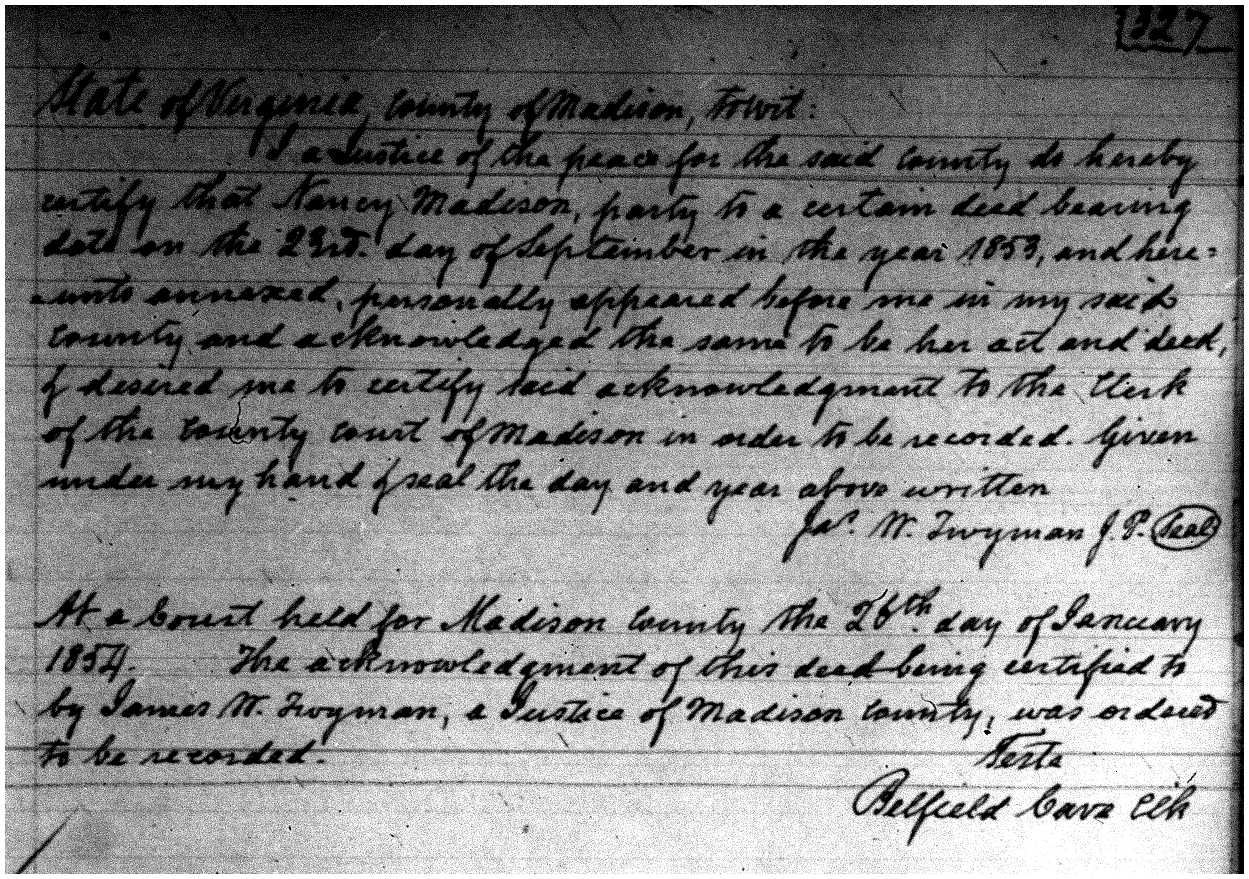 327
State of Virginia, County of Madison, towit:
I a Justice of the peace for the said County do hereby
certify that Nancy Madison, party to a certain deed bearing
date on the 23rd. day of September in the year 1853, and here=
=unto annexed, personally appeared before me in my said
County and acknowledged the same to be her act and deed,
& desired me to certify said acknowledgment to the Clerk
of the County Court of Madison in order to be recorded. Given
under my hand & seal the day and year above written
Jas. W. Twyman J. P. Seal
At a Court held for Madison County the 26th. day of January
1854. The acknowledgment of this deed being certified to
by James W. Twyman, a Justice of Madison County, was ordered
to be recorded.
Teste
Belfield Cave Clk